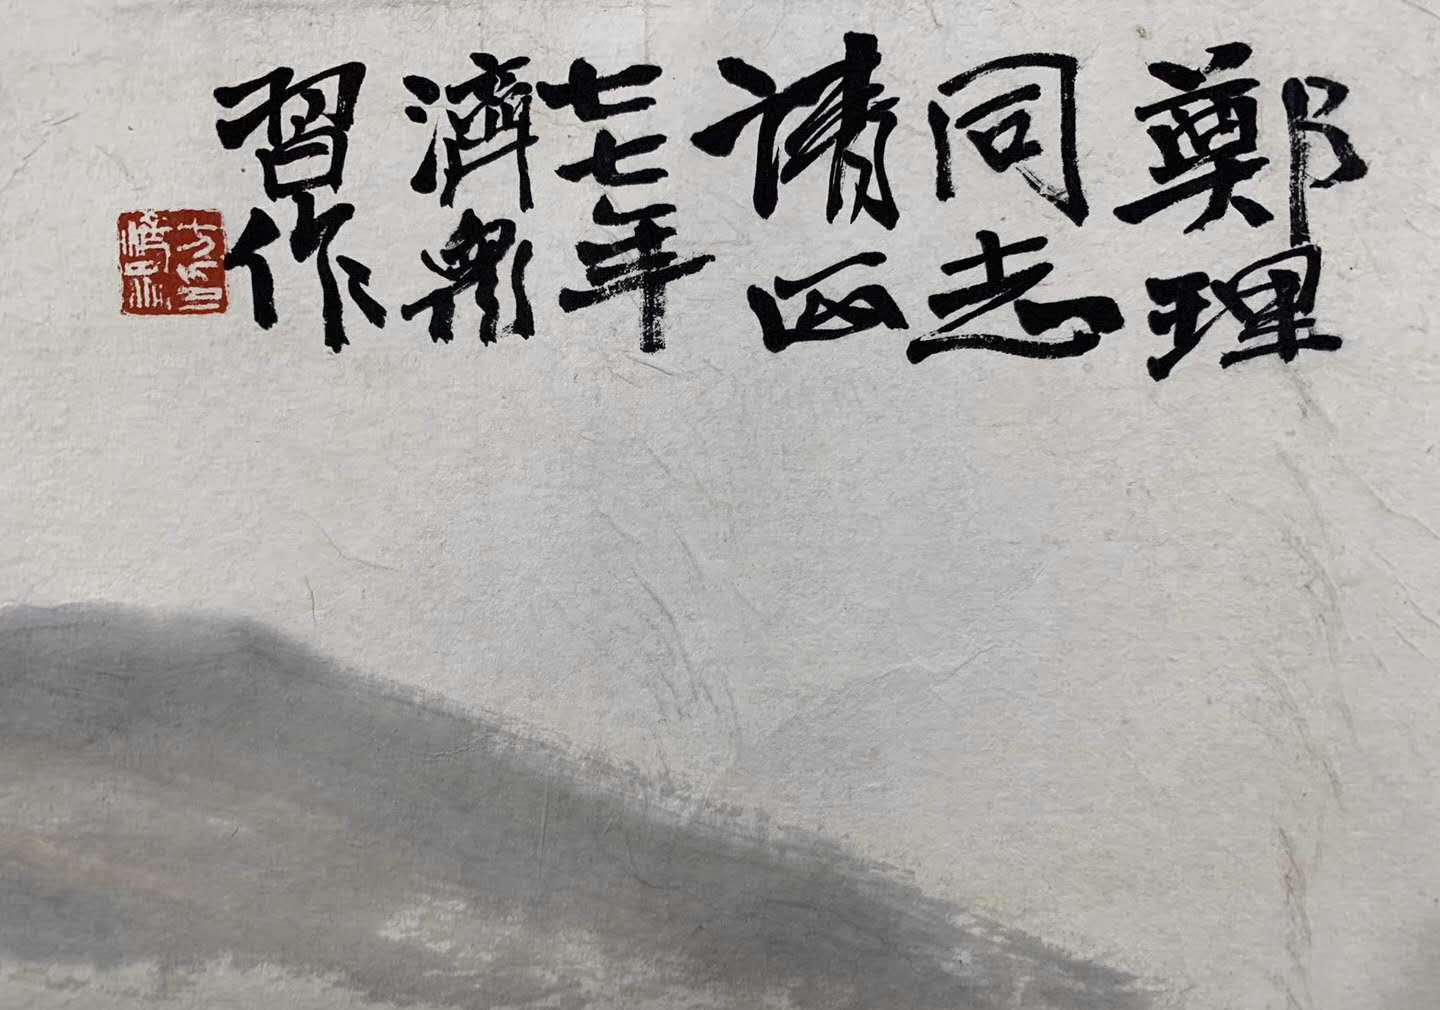 鄭理
同志
请正
七七年
濟眾
習作